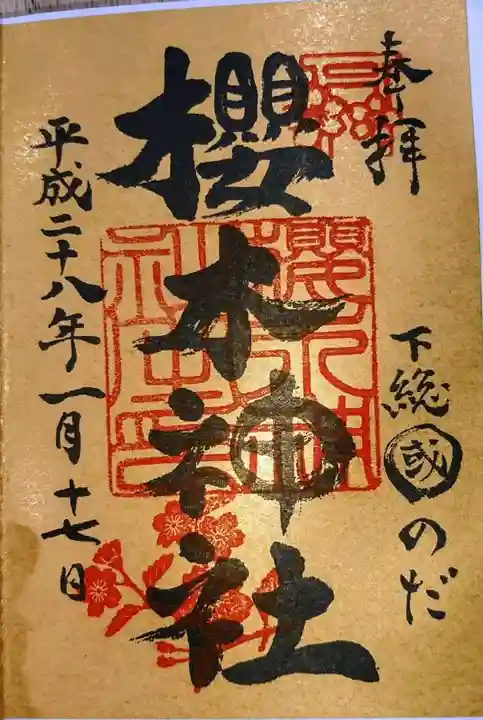 奉拝
下総國のだ
櫻木神社
平成二十八年一月十七日